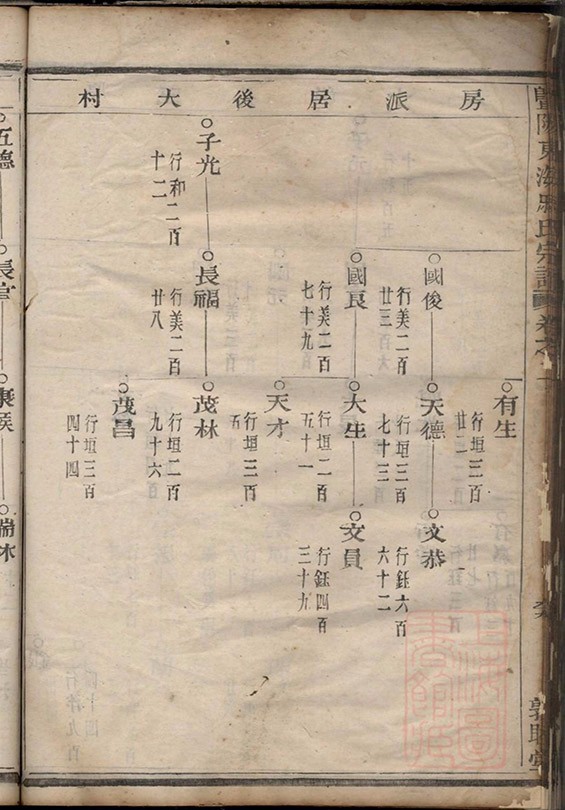 房派居後大村
有生
行垣三百
廿二
國俊
行美二百
廿三
天德
行垣三百
七十三
文恭
行鈺六百
六十二
國良
行美二百
七十九
大生
行垣二百
五十一
文員
行鈺四百
三十九
天才
行垣三百
五
子光
行和二百
十二
長福
行美二百
廿八
茂林
行垣二百
九十六
茂昌
行垣三百
四十四
五德